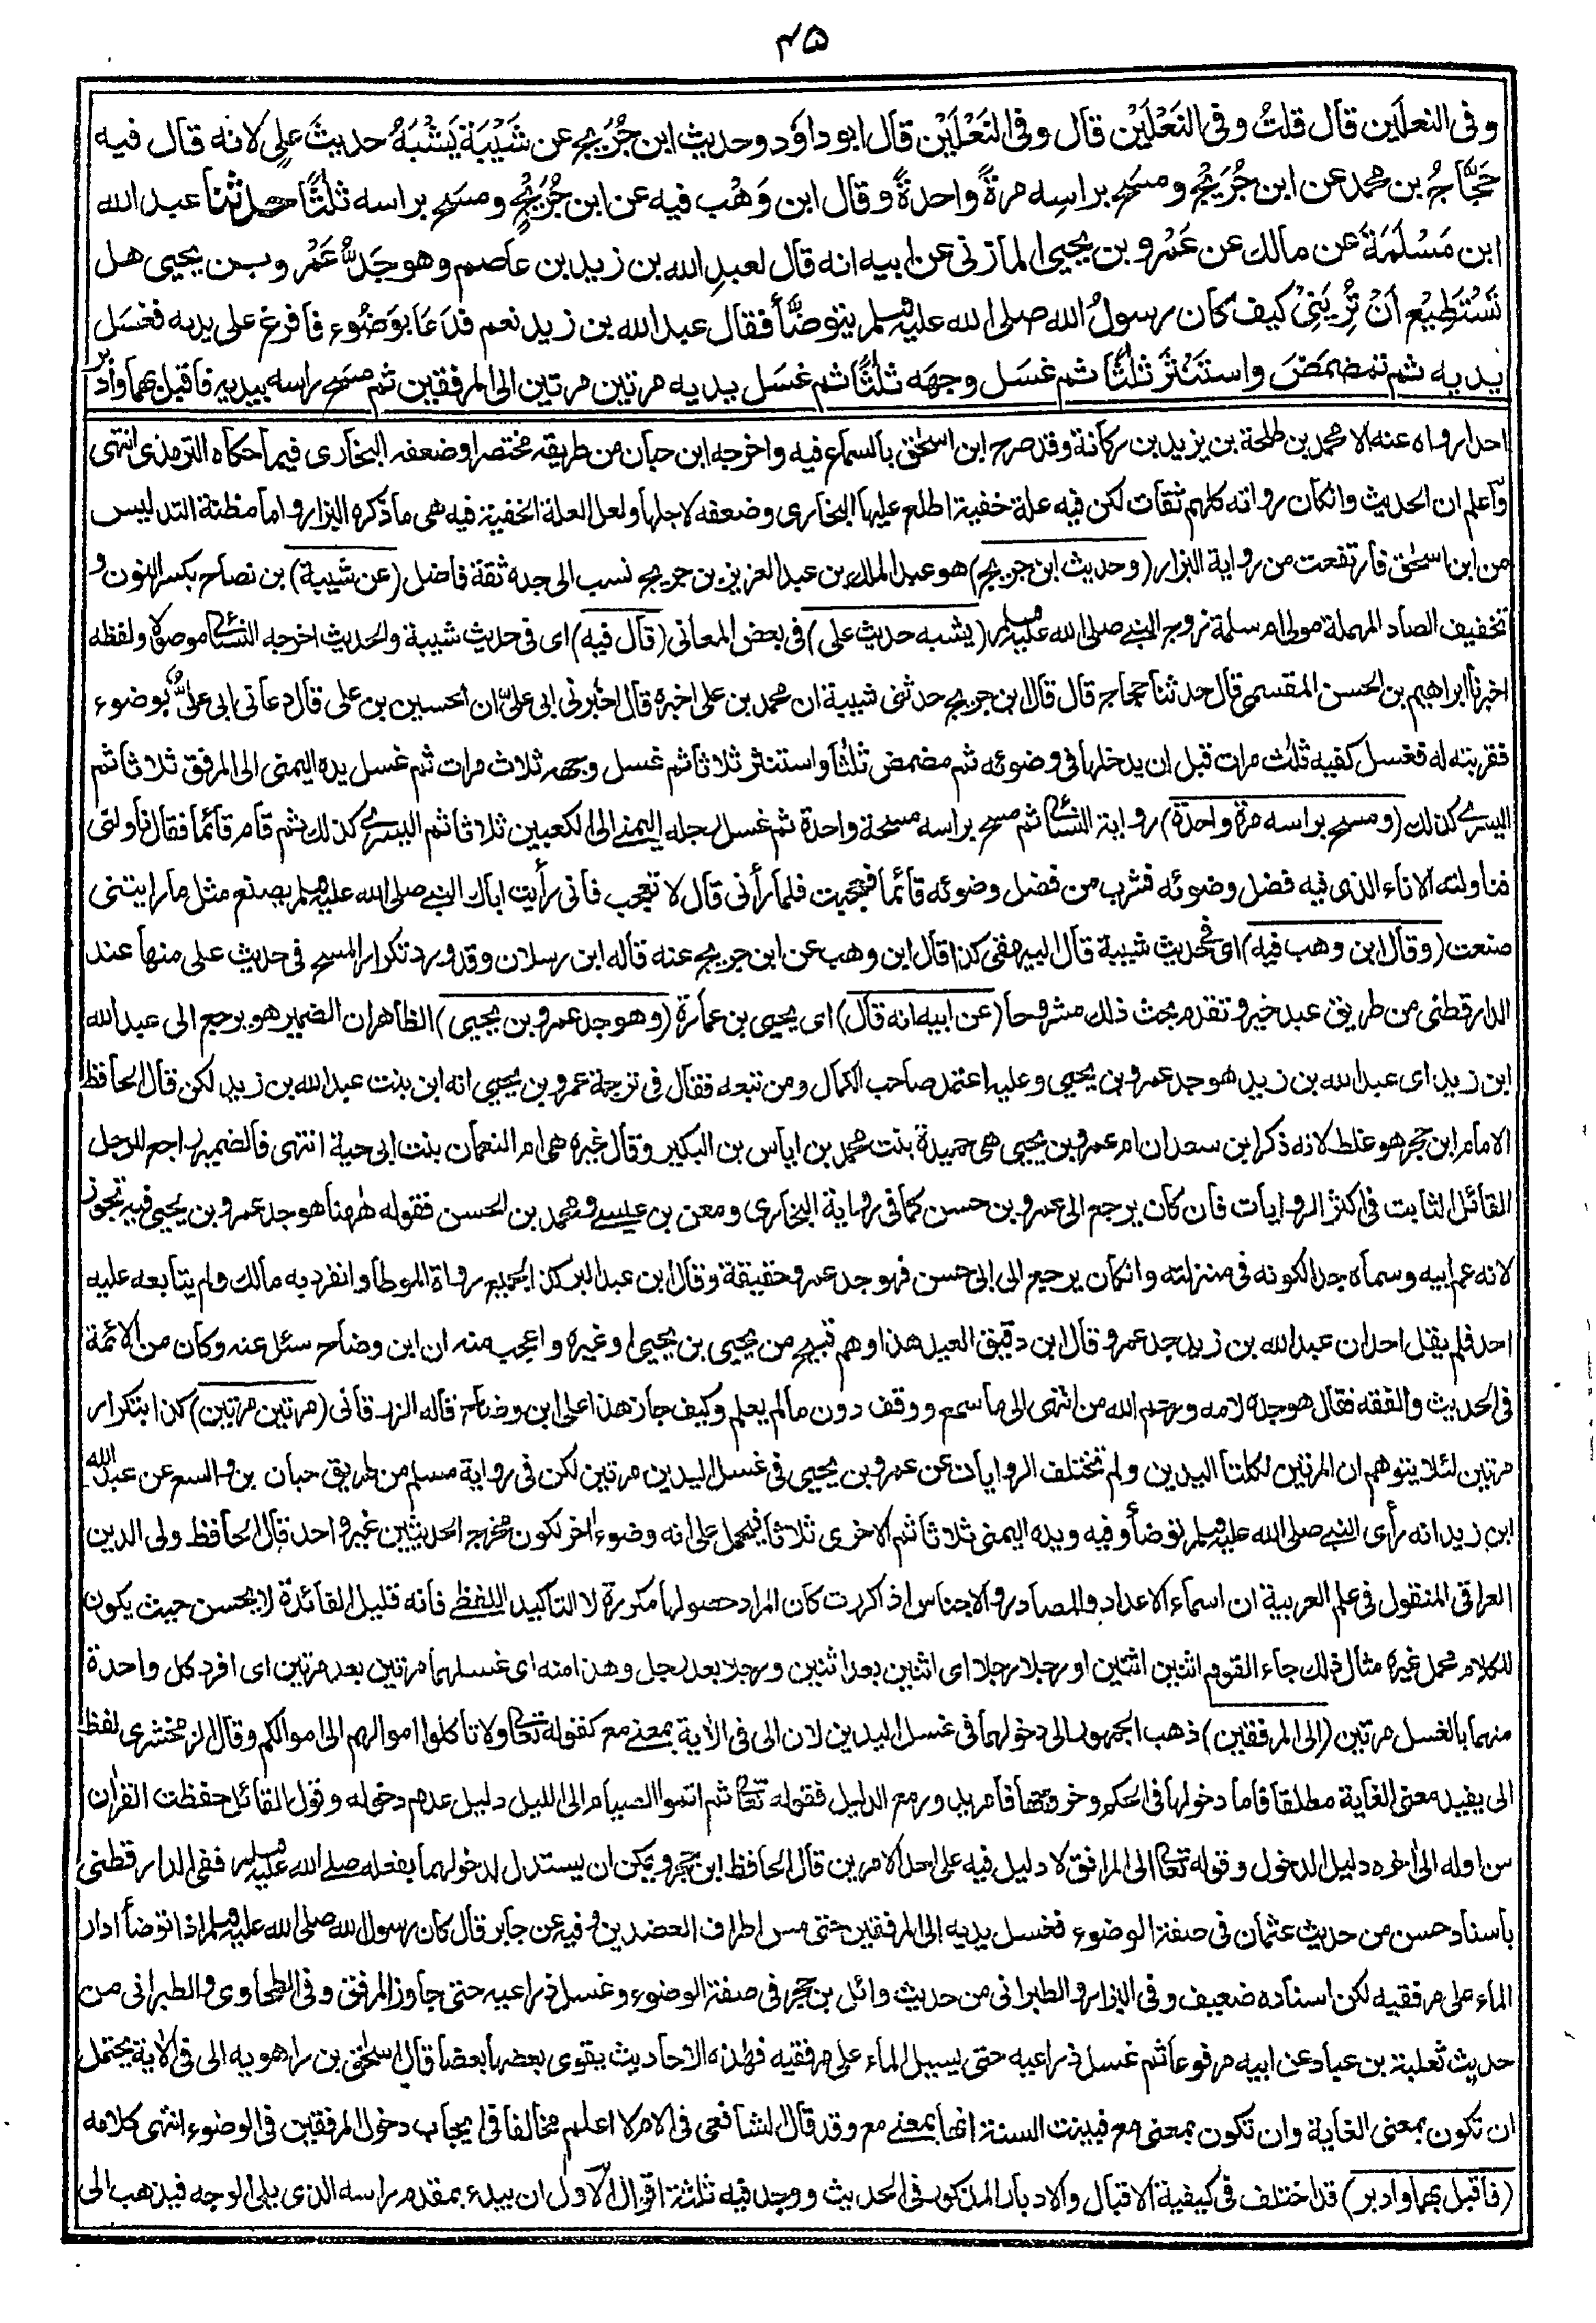 ٤٥
وفى النعلين قال قلتُ وفى النَعْلَيْن قال وفى النَعْلَيْن قال ابو داؤد وحديث ابن جُرَيْجٍ عن شَيْبَةَ يَشْبَهُ حديثَ علىٍ لانه قال فيه
حَجَّاجُ بن محمد عن ابن جُرَيْجٍ ومسَحَ براسِه مرةً واحدةً وقال ابن وَهْب فيه عن ابن جُرَيْجٍ ومسَحَ براسه ثلثًا حدثنا عبد الله
ابن مَسْلَمَةَ عن مالك عن عَمْرو بن يحيى المازنى عن ابيه انه قال لعبدِ الله بن زيد بن عاصم وهو جَدُّ عَمْرو بن يحيى هل
تَسْتَطِيْع اَنْ تُرِيَنِىْ كيف كان رسولُ الله صلى الله عليه وسلم يتوضّأ فقال عبد الله بن زيد نعم فدَعَا بوَضُوء فافرغ على يديه فغسَل
يديه ثم تمضمَضَ واستَنْثَرَ ثلثًا ثم غسَل وجهَه ثلثًا ثم غسَل يديه مرتين مرتين الى المرفقين ثم مسَحَ راسه بيديه فاقبل بهما وادبر
احدا رواه عنه الا محمد بن طلحة بن يزيد بن ركانة وقد صرح ابن اسحٰق بالسماع فيه واخرجه ابن حبان من طريقه مختصرا وضعفه البخارى فيما حكاه الترمذى انتهى
واعلم ان الحديث وانكان رواته كلهم ثقات لكن فيه علة خفية اطلع عليها البخارى وضعفه لاجلها ولعل العلة الخفية فيه هى ما ذكره البزار واما مظنة التدليس
من ابن اسحٰق فارتفعت من رواية البزار (وحديث ابن جريج) هو عبد الملك بن عبد العزيز بن جريج نسب الى جده ثقة فاضل (عن شيبة) بن نصاح بكسر النون و
تخفيف الصاد المهملة مولى ام سلمة زوج النبى صلى الله عليه وسلم (يشبه حديث على) فى بعض المعانى (قال فيه) اى فى حديث شيبة والحديث اخرجه النسائى موصولا ولفظه
اخبرنا ابراهيم بن الحسن المقسمى قال حدثنا حجاج قال قال ابن جريج حدثنى شيبة ان محمد بن على اخبره قال اخبرنى ابى علىّ ان الحسين بن على قال دعانى ابى علىّ بوضوء
فقربته له فغسل كفيه ثلٰث مرات قبل ان يدخلها فى وضوئه ثم مضمض ثلٰثا واستنثر ثلاثا ثم غسل وجهه ثلاث مرات ثم غسل يده اليمنى الى المرفق ثلاثا ثم
اليسرى كذلك (ومسح براسه مرة واحدة) رواية النسائى ثم مسح براسه مسحة واحدة ثم غسل رجله اليمنى الى الكعبين ثلاثا ثم اليسرى كذلك ثم قام قائما فقال ناولنى
فناولته الاناء الذى فيه فضل وضوئه فشرب من فضل وضوئه قائما فعجبت فلما رأنى قال لا تعجب فانى رأيت اباك النبى صلى الله عليه وسلم يصنع مثل ما رايتنى
صنعت (وقال ابن وهب فيه) اى فى حديث شيبة قال البيهقى كذا قال ابن وهب عن ابن جريج عنه قاله ابن رسلان وقد ورد تكرار المسح فى حديث على منها عند
الدارقطنى من طريق عبد خير وتقدم بحث ذلك مشروحا (عن ابيه انه قال) اى يحيى بن عمارة (وهو جد عمرو بن يحيى) الظاهر ان الضمير هو يرجع الى عبد الله
ابن زيد اى عبد الله بن زيد هو جد عمرو بن يحيى وعليه اعتمد صاحب الكمال ومن تبعه فقال فى ترجمة عمرو بن يحيى انه ابن بنت عبد الله بن زيد لكن قال الحافظ
الامام ابن حجر هو غلط لانه ذكر ابن سعد ان ام عمرو بن يحيى هى حميدة بنت محمد بن اياس بن البكير وقال غيره هى ام النعمان بنت ابى حية انتهى فالضمير راجع للرجل
القائل الثابت فى اكثر الروايات فان كان يرجع الى عمرو بن حسن كما فى رواية البخارى ومعن بن عيسى ومحمد بن الحسن فقوله ههنا هو جد عمرو بن يحيى فيه تجوز
لانه عم ابيه وسماه جدا لكونه فى منزلته وانكان يرجع الى ابى حسن فهو جد عمرو حقيقة وقال ابن عبد البر كذا لجميع رواة الموطأ وانفرد به مالك ولم يتابعه عليه
احد فلم يقل احد ان عبد الله بن زيد جد عمرو قال ابن دقيق العيد هذا وهم قبيح من يحيى بن يحيى او غيره واعجب منه ان ابن وضاح سئل عنه وكان من الائمة
فى الحديث والفقه فقال هو جده لامه ورحم الله من انتهى الى ما سمع ووقف دون ما لم يعلم وكيف جاز هذا على ابن وضاح قاله الزرقانى (مرتين مرتين) كذا بتكرار
مرتين لئلا يتوهم ان المرتين لكلتا اليدين ولم تختلف الروايات عن عمرو بن يحيى فى غسل اليدين مرتين لكن فى رواية مسلم من طريق حبان بن واسع عن عبد الله
ابن زيد انه رأى النبى صلى الله عليه وسلم توضأ وفيه ويده اليمنى ثلاثا ثم الاخرى ثلاثا فيحمل على انه وضوء اٰخر لكون مخرج الحديثين غير واحد قال الحافظ ولى الدين
العراقى المنقول فى علم العربية ان اسماء الاعداد والمصادر والاجناس اذ اكررت كان المراد حصولها مكررة لا التاكيد اللفظى فانه قليل الفائدة لا يحسن حيث يكون
للكلام محمل غيره مثال ذلك جاء القوم اثنين اثنين او رجلا رجلا اى اثنين بعد اثنين ورجلا بعد رجل وهذا منه اى غسلهما مرتين بعد مرتين اى افرد كل واحدة
منهما بالغسل مرتين (الى المرفقين) ذهب الجمهور الى دخولهما فى غسل اليدين لان الى فى الاٰية بمعنى مع كقوله تعالى ولا تاكلوا اموالهم الى اموالكم وقال الزمخشرى لفظ
الى يفيد معنى الغاية مطلقا فاما دخولها فى الحكم وخروجها فامر يدور مع الدليل فقوله تعالى ثم اتموا الصيام الى الليل دليل عدم دخوله وقول القائل حفظت القراٰن
من اوله الى اٰخره دليل الدخول وقوله تعالى الى المرافق لا دليل فيه على احد الامرين قال الحافظ ابن حجر ويمكن ان يستدل لدخولهما بفعله صلى الله عليه وسلم ففى الدارقطنى
باسناد حسن من حديث عثمان فى صفة الوضوء فغسل يديه الى المرفقين حتى مس اطراف العضدين وفيه عن جابر قال كان رسول الله صلى الله عليه وسلم اذا توضأ ادار
الماء على مرفقيه لكن اسناده ضعيف وفى البزار والطبرانى من حديث وائل بن حجر فى صفة الوضوء وغسل ذراعيه حتى جاوز المرفق وفى الطحاوى والطبرانى من
حديث ثعلبة بن عباد عن ابيه مرفوعا ثم غسل ذراعيه حتى يسيل الماء على مرفقيه فهذه الاحاديث يقوى بعضها بعضا قال اسحٰق بن راهويه الى فى الاٰية يحتمل
ان تكون بمعنى الغاية وان تكون بمعنى مع فبينت السنة انها بمعنى مع وقد قال الشافعى فى الام لا اعلم مخالفا فى ايجاب دخول المرفقين فى الوضوء انتهى كلامه
(فاقبل بهما وادبر) قد اختلف فى كيفية الاقبال والادبار المذكور فى الحديث ووجد فيه ثلثة اقوال الاول ان يبدء بمقدم راسه الذى يلى الوجه فيذهب الى